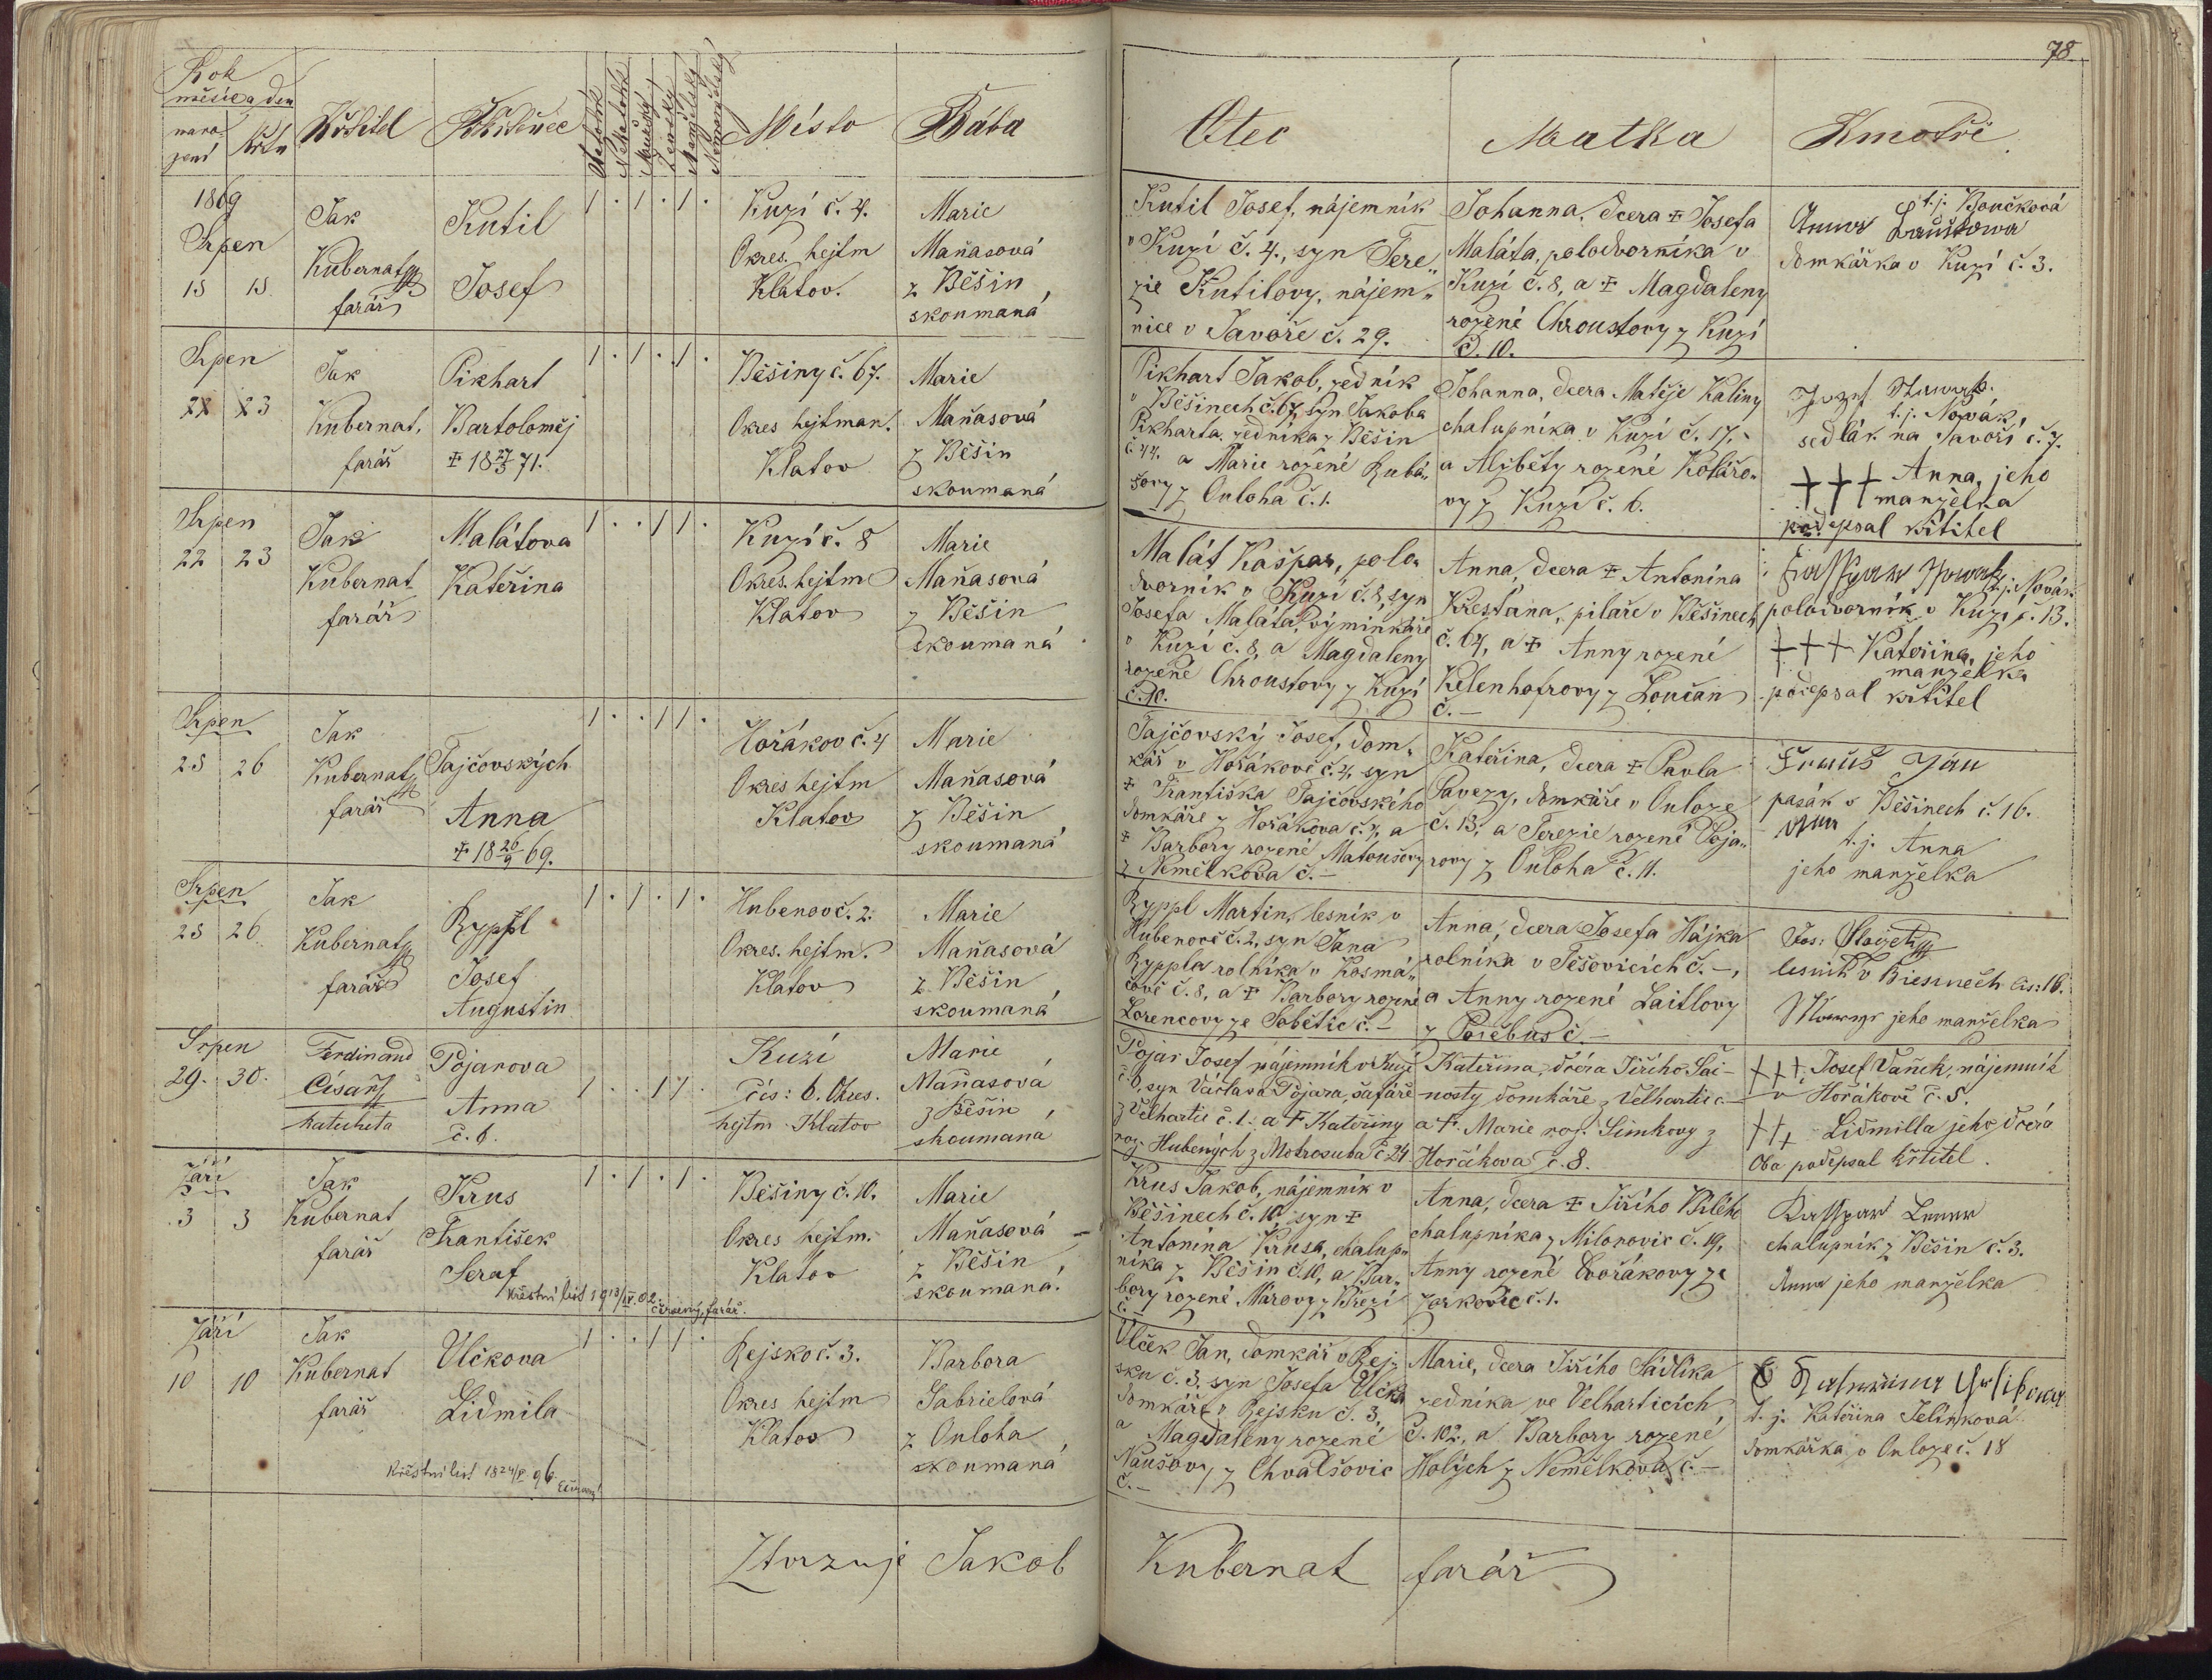 78
Rok
měsíc a den
naro-
zení
křtu
Křtitel
Pokřtěnec
Katolík
Nekatolík
Mužský
Ženský
Manželský
Nemanželský
Místo
Bába
Otec
Matka
Kmotři
1869
Srpen
15 15
Jak
Kubernat
farář
Kutil
Josef
1 . 1 . 1 .
Kuzí č. 4.
Okres. hejtm
Klatov.
Marie
Maňasová
z Běšin
skoumaná
Kutil Josef, nájemník
v Kuzí č. 4., syn Tere„
zie Kutilovy, nájem„
nice v Javoře č. 29.
Johanna, dcera ✝ Josefa
Maláta, polodvorníka v
Kuzí č. 8, a ✝ Magdaleny
rozené Chroustovy z Kuzí
č. 10.
t. j. Boučková
Anna
domkářka v Kuzí č. 3.
Srpen
22 23
Jak
Kubernat,
farář
Pikhart
Bartoloměj
✝ 18 27/3 71.
1 . 1 . 1 .
Běšiny č. 67.
Okres hejtman.
Klatov
Marie
Maňasová
z Běšin
skoumaná
Pikhart Jakob, zedník
v Běšinech č. 67, syn Jakoba
Pikharta, zedníka z Běšin
č. 44. a Marie rozené Kubá„
šovy z Ouloha č. 1.
Johanna, dcera Matěje Kaliny
chalupníka v Kuzí č. 17.
a Alžběty rozené Koláro„
vy z Kuzí č. 6.
Jozef
t. j. Novák,
sedlák na Javoří č. 7.
+++ Anna, jeho
manželka
podepsal křtitel
Srpen
22 23
Jak
Kubernat
farář
Malátova
Kateřina
1 . . 1 1 .
Kuzí č. 8
Okres. hejtm
Klatov
Marie
Maňasová
z Běšin
skoumaná
Malát Kašpar, polo„
dvorník v Kuzí č. 8, syn
Josefa Maláta, výminkáře
v Kuzí č. 8, a Magdaleny
rozené Chroustovy z Kuzí
č. 10.
Anna, dcera ✝ Antonína
Křesťana, pilaře v Běšinech
č. 64, a ✝ Anny rozené
Kelenhofrovy z Loučan
č. —
Kasspar Nowak t. j. Novák
polodvorník v Kuzí č. 13.
+++ Kateřina, jeho
manželka
podepsal křtitel
Srpen
25 26
Jak
Kubernat
farář
Tajčovských
Anna
✝ 18 26/9 69.
1 . . 1 1 .
Hořákov č. 4
Okres hejtm
Klatov
Marie
Maňasová
z Běšin
skoumaná
Tajčovský Josef, dom„
kář v Hořákově č. 4, syn
✝ Františka Tajčovského
domkáře z Hořákova č. 4, a
✝ Barbory rozené Matoušovy
z Nemělkova č. —
Kateřina, dcera ✝ Pavla
Pavezy, domkáře v Ouloze
č. 13, a Terezie rozené Poja„
rovy z Ouloha č. 11.
Jan
pasák v Běšinech č. 16.
t. j. Anna
jeho manželka
Srpen
25 26
Jak
Kubernat
farář
Ryppl
Josef
Augustin
1 . 1 . 1 .
Hubenov č. 2.
Okres. hejtm.
Klatov
Marie
Maňasová
z Běšin
skoumaná
Ryppl Martin, lesník v
Hubenově č. 2, syn Jana
Ryppla rolníka v Kosmá„
čově č. 8, a ✝ Barbory rozené
Lorencovy ze Sobětic č. —
Anna, dcera Josefa Hájka
rolníka v Těšovicích č. —,
a Anny rozené Laitlovy
z Pořebus č. —
Jos:
lesník v Biesinech čis: 16.
jeho manželka
Srpen
29. 30.
Ferdinand
Císař
katecheta
Pojarova
Anna
č. 6.
1 . . 1 1 .
Kuzí
čís: 6. Okres.
hejtm Klatov
Marie
Maňasová
z Běšin
skoumaná
Pojar Josef nájemník v Kuzí
č. 6, syn Václava Pojara, šafáře
z Velhartic č. 1. a ✝ Kateřiny
roz. Hubených z Mokrosuka č 24
Kateřina, dcera Jiřího Šač-
nosty domkáře z Velhartic č. —
a ✝ Marie roz. Šimkovy z
Hořákova č. 8.
+++ Josef Vaněk, nájemník
v Hořákově č. 5.
+++ Lidmilla jeho dcera
Oba podepsal křtitel.
Září
3 3
Jak
Kubernat
farář
Krus
František
Seraf
Křestní list 1913/IV. 02. Červený, farář.
1 . 1 . 1 .
Běšiny č. 10.
Okres hejtm.
Klatov
Marie
Maňasová
z Běšin
skoumaná
Krus Jakob, nájemník v
Běšinech č. 10, syn ✝
Antonína Krusa, chalup„
níka z Běšin č. 10, a Bar„
bory rozené Márovy z Březí
č. —
Anna, dcera ✝ Jiřího Bílého
chalupníka z Milonovic č. 19,
Anny rozené Dvořákovy ze
Zorkovic č. 1.
Kasspar
chalupník z Běšin č. 3.
Anna jeho manželka
Září
10 10
Jak
Kubernat
farář
Vlčkova
Lidmila
Křestní list 1824/V. 96. Červený
1 . . 1 1 .
Rejsko č. 3.
Okres hejtm
Klatov
Barbora
Gabrielová
z Ouloha
skoumaná
Vlček Jan, domkář v Rej„
sku č. 3, syn Josefa Vlčka
domkáře v Rejsku č. 3,
a Magdaleny rozené
Naušovy z Chvalšovic
č. —
Marie, dcera Jiřího Sádlíka
zedníka ve Velharticích
č. 102, a Barbory rozené
Holých z Nemělkova č. —
t. j. Kateřina Jelínková
domkářka v Ouloze č. 18
Ztvrzuje Jakob Kubernat farář